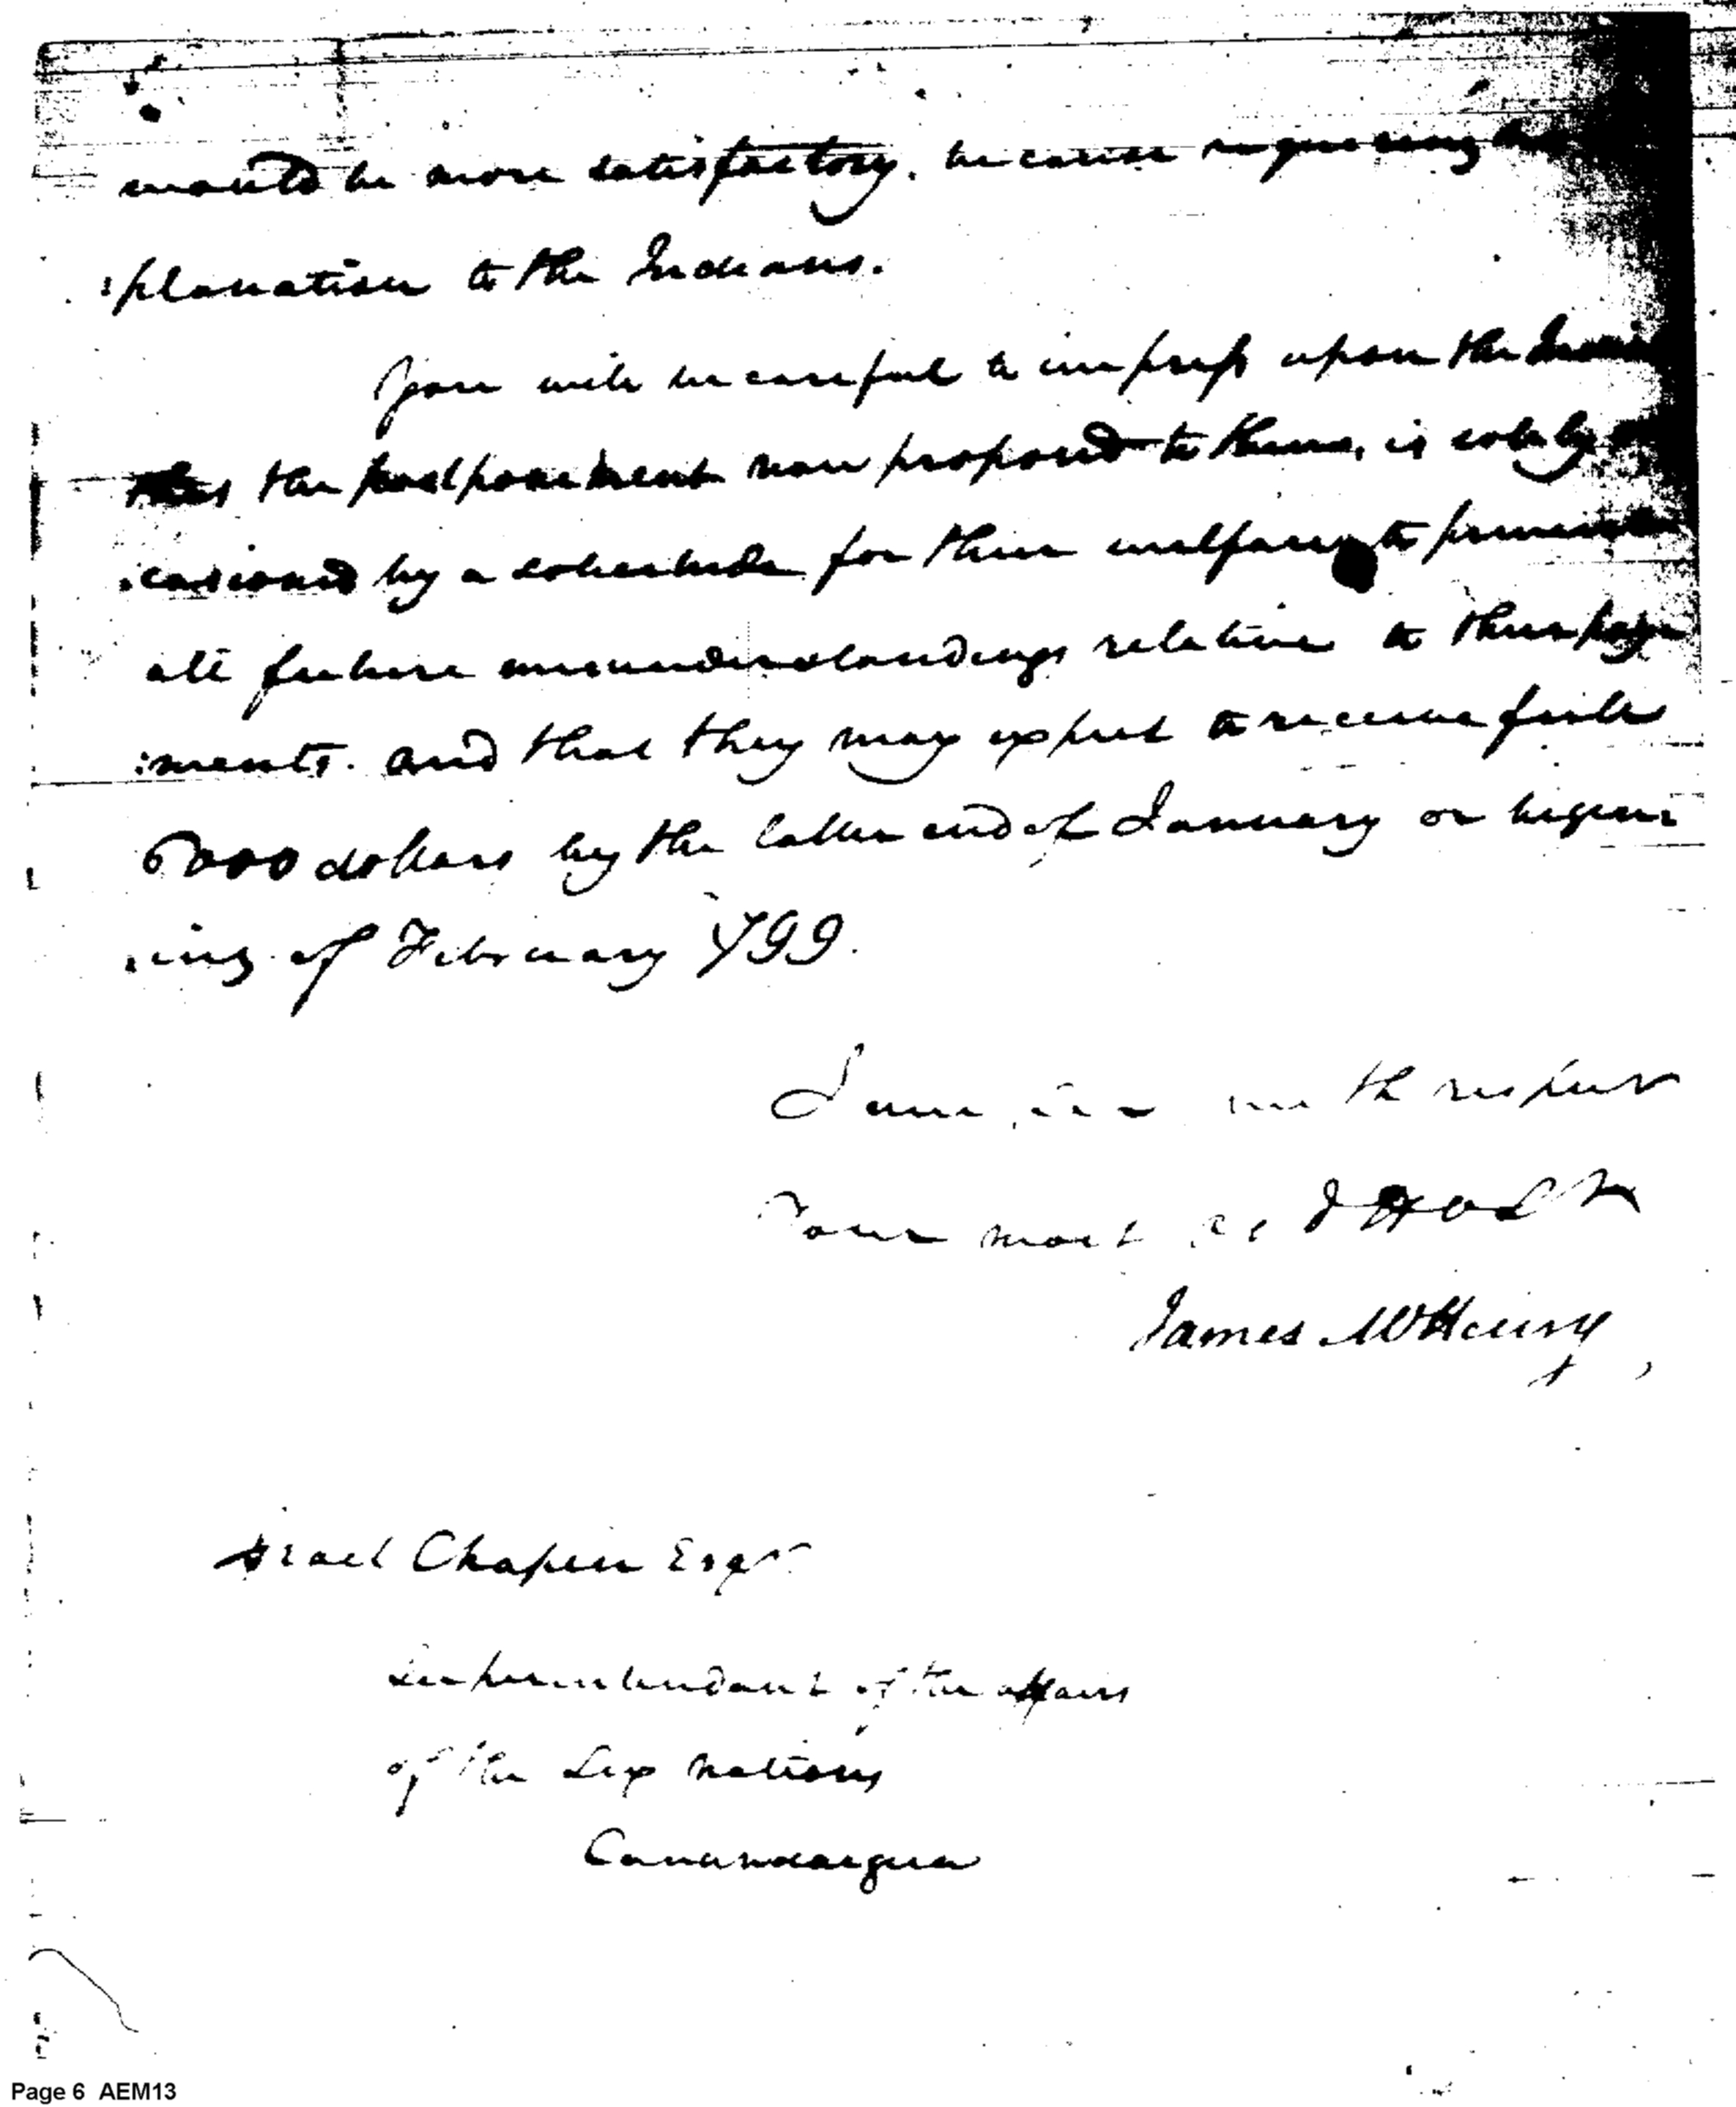 would be more satisfactory, because requiring
:planation to the Indians.
You will be careful to impress upon the Indians
that the postponement now proposed to them, is solely
:casioned by a solicitude for their welfare, to prevent
all future misunderstandings relative to their pay
:ments. and that they may expect to receive fully
6000 dollars by the latter end of January or beginn
:ing of February 799.
I am, Sir with respect
Your most
James McHenry
Israel Chapin Esqr
Superintendant of the affairs
of the Six nations
Canandaigua
Page 6 AEM13